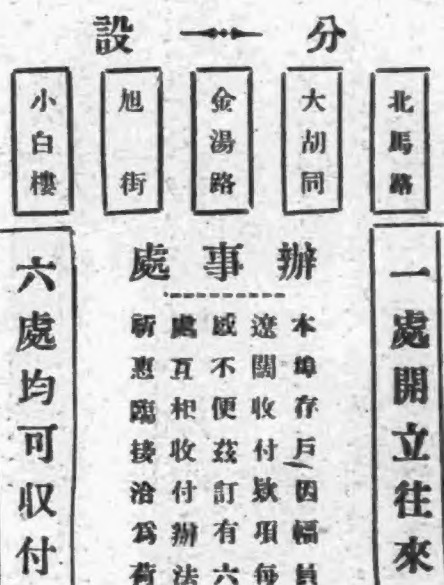 分設
北馬路
大胡同
金湯路
旭街
小白樓
一處開立往來
辦事處
本埠存戶因幅員
遼闊收付款項每
感不便茲訂有六
處互相收付辦法
祈惠臨接洽爲荷
六處均可収付